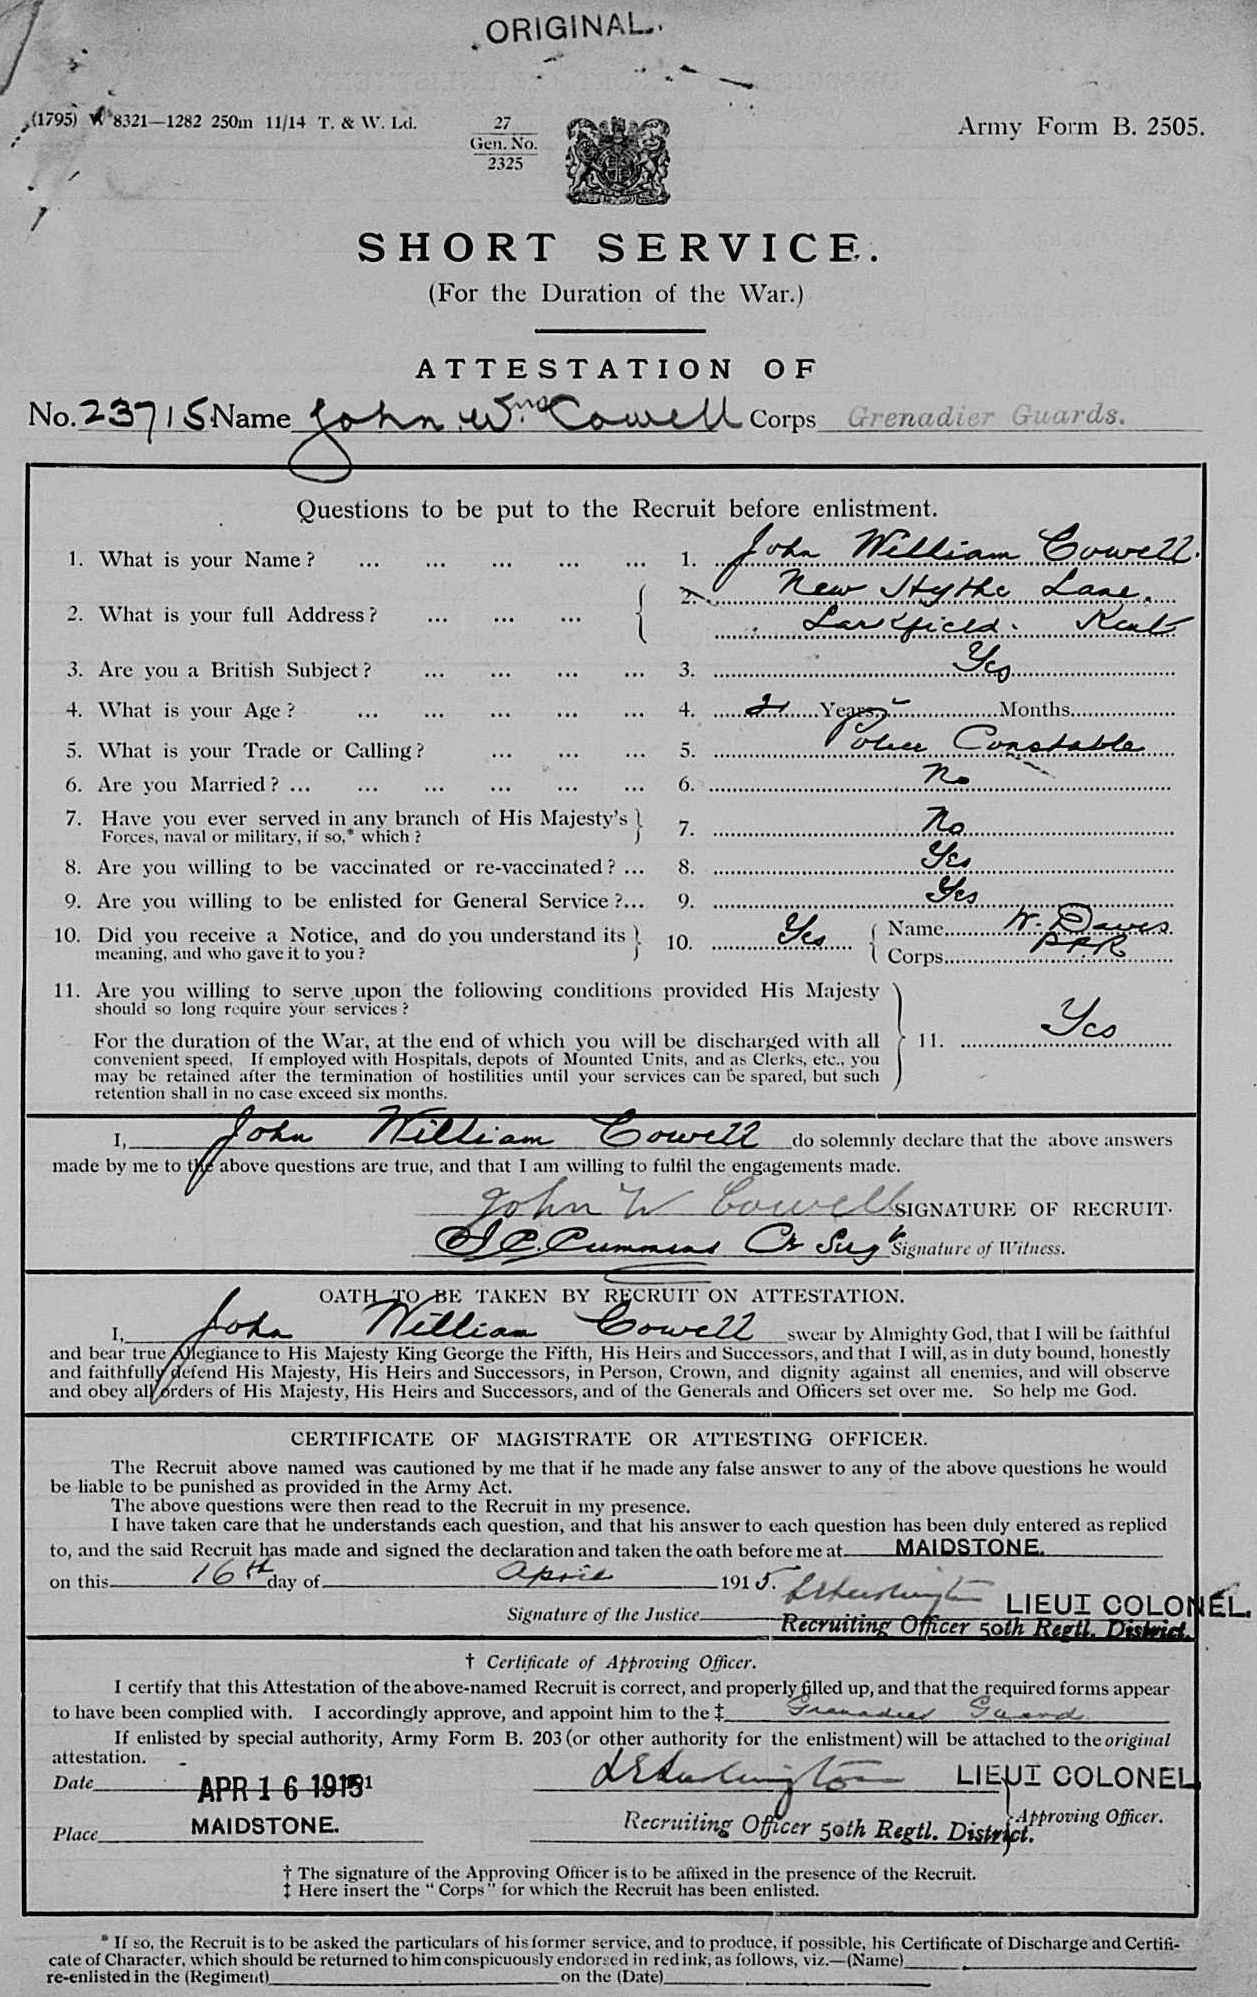 ORIGINAL.
(1795) W 8321—1282 250m 11/14 T. & W. Ld.
27
Gen. No.
2325
Army Form B. 2505.
SHORT SERVICE.
(For the Duration of the War.)
ATTESTATION OF
No. 23715 Name John Wm Cowell Corps Grenadier Guards.
Questions to be put to the Recruit before enlistment.
1. What is your Name? ... ... ... ... ... 1. John William Cowell.
2. What is your full Address? ... ... ... 2. New Hythe Lane.
Larkfield. Kent
3. Are you a British Subject? ... ... ... ... 3. Yes
4. What is your Age? ... ... ... ... ... 4. 21 Years - Months
5. What is your Trade or Calling? ... ... ... 5. Police Constable
6. Are you Married? ... ... ... ... ... ... 6. No
7. Have you ever served in any branch of His Majesty's
Forces, naval or military, if so,* which? 7. No
8. Are you willing to be vaccinated or re-vaccinated? ... 8. Yes
9. Are you willing to be enlisted for General Service?... 9. Yes
10. Did you receive a Notice, and do you understand its
meaning, and who gave it to you? 10. Yes { Name W. Dawes
Corps
11. Are you willing to serve upon the following conditions provided His Majesty
should so long require your services?
For the duration of the War, at the end of which you will be discharged with all
convenient speed. If employed with Hospitals, depots of Mounted Units, and as Clerks, etc., you
may be retained after the termination of hostilities until your services can be spared, but such
retention shall in no case exceed six months. 11. Yes
I, John William Cowell do solemnly declare that the above answers
made by me to the above questions are true, and that I am willing to fulfil the engagements made.
John W Cowell SIGNATURE OF RECRUIT.
Cummens Signature of Witness.
OATH TO BE TAKEN BY RECRUIT ON ATTESTATION.
I, John William Cowell swear by Almighty God, that I will be faithful
and bear true Allegiance to His Majesty King George the Fifth, His Heirs and Successors, and that I will, as in duty bound, honestly
and faithfully defend His Majesty, His Heirs and Successors, in Person, Crown, and dignity against all enemies, and will observe
and obey all orders of His Majesty, His Heirs and Successors, and of the Generals and Officers set over me. So help me God.
CERTIFICATE OF MAGISTRATE OR ATTESTING OFFICER.
The Recruit above named was cautioned by me that if he made any false answer to any of the above questions he would
be liable to be punished as provided in the Army Act.
The above questions were then read to the Recruit in my presence.
I have taken care that he understands each question, and that his answer to each question has been duly entered as replied
to, and the said Recruit has made and signed the declaration and taken the oath before me at MAIDSTONE.
on this 16th day of April 1915.
LIEUT COLONEL.
Signature of the Justice
Recruiting Officer 50th Regtl. District.
† Certificate of Approving Officer.
I certify that this Attestation of the above-named Recruit is correct, and properly filled up, and that the required forms appear
to have been complied with. I accordingly approve, and appoint him to the ‡ Grenadier Guards
If enlisted by special authority, Army Form B. 203 (or other authority for the enlistment) will be attached to the original
attestation.
Date APR 16 1915 191
LIEUT COLONEL
Approving Officer.
Place MAIDSTONE.
Recruiting Officer 50th Regtl. District.
† The signature of the Approving Officer is to be affixed in the presence of the Recruit.
‡ Here insert the "Corps" for which the Recruit has been enlisted.
* If so, the Recruit is to be asked the particulars of his former service, and to produce, if possible, his Certificate of Discharge and Certifi-
cate of Character, which should be returned to him conspicuously endorsed in red ink, as follows, viz.—(Name)
re-enlisted in the (Regiment) on the (Date)